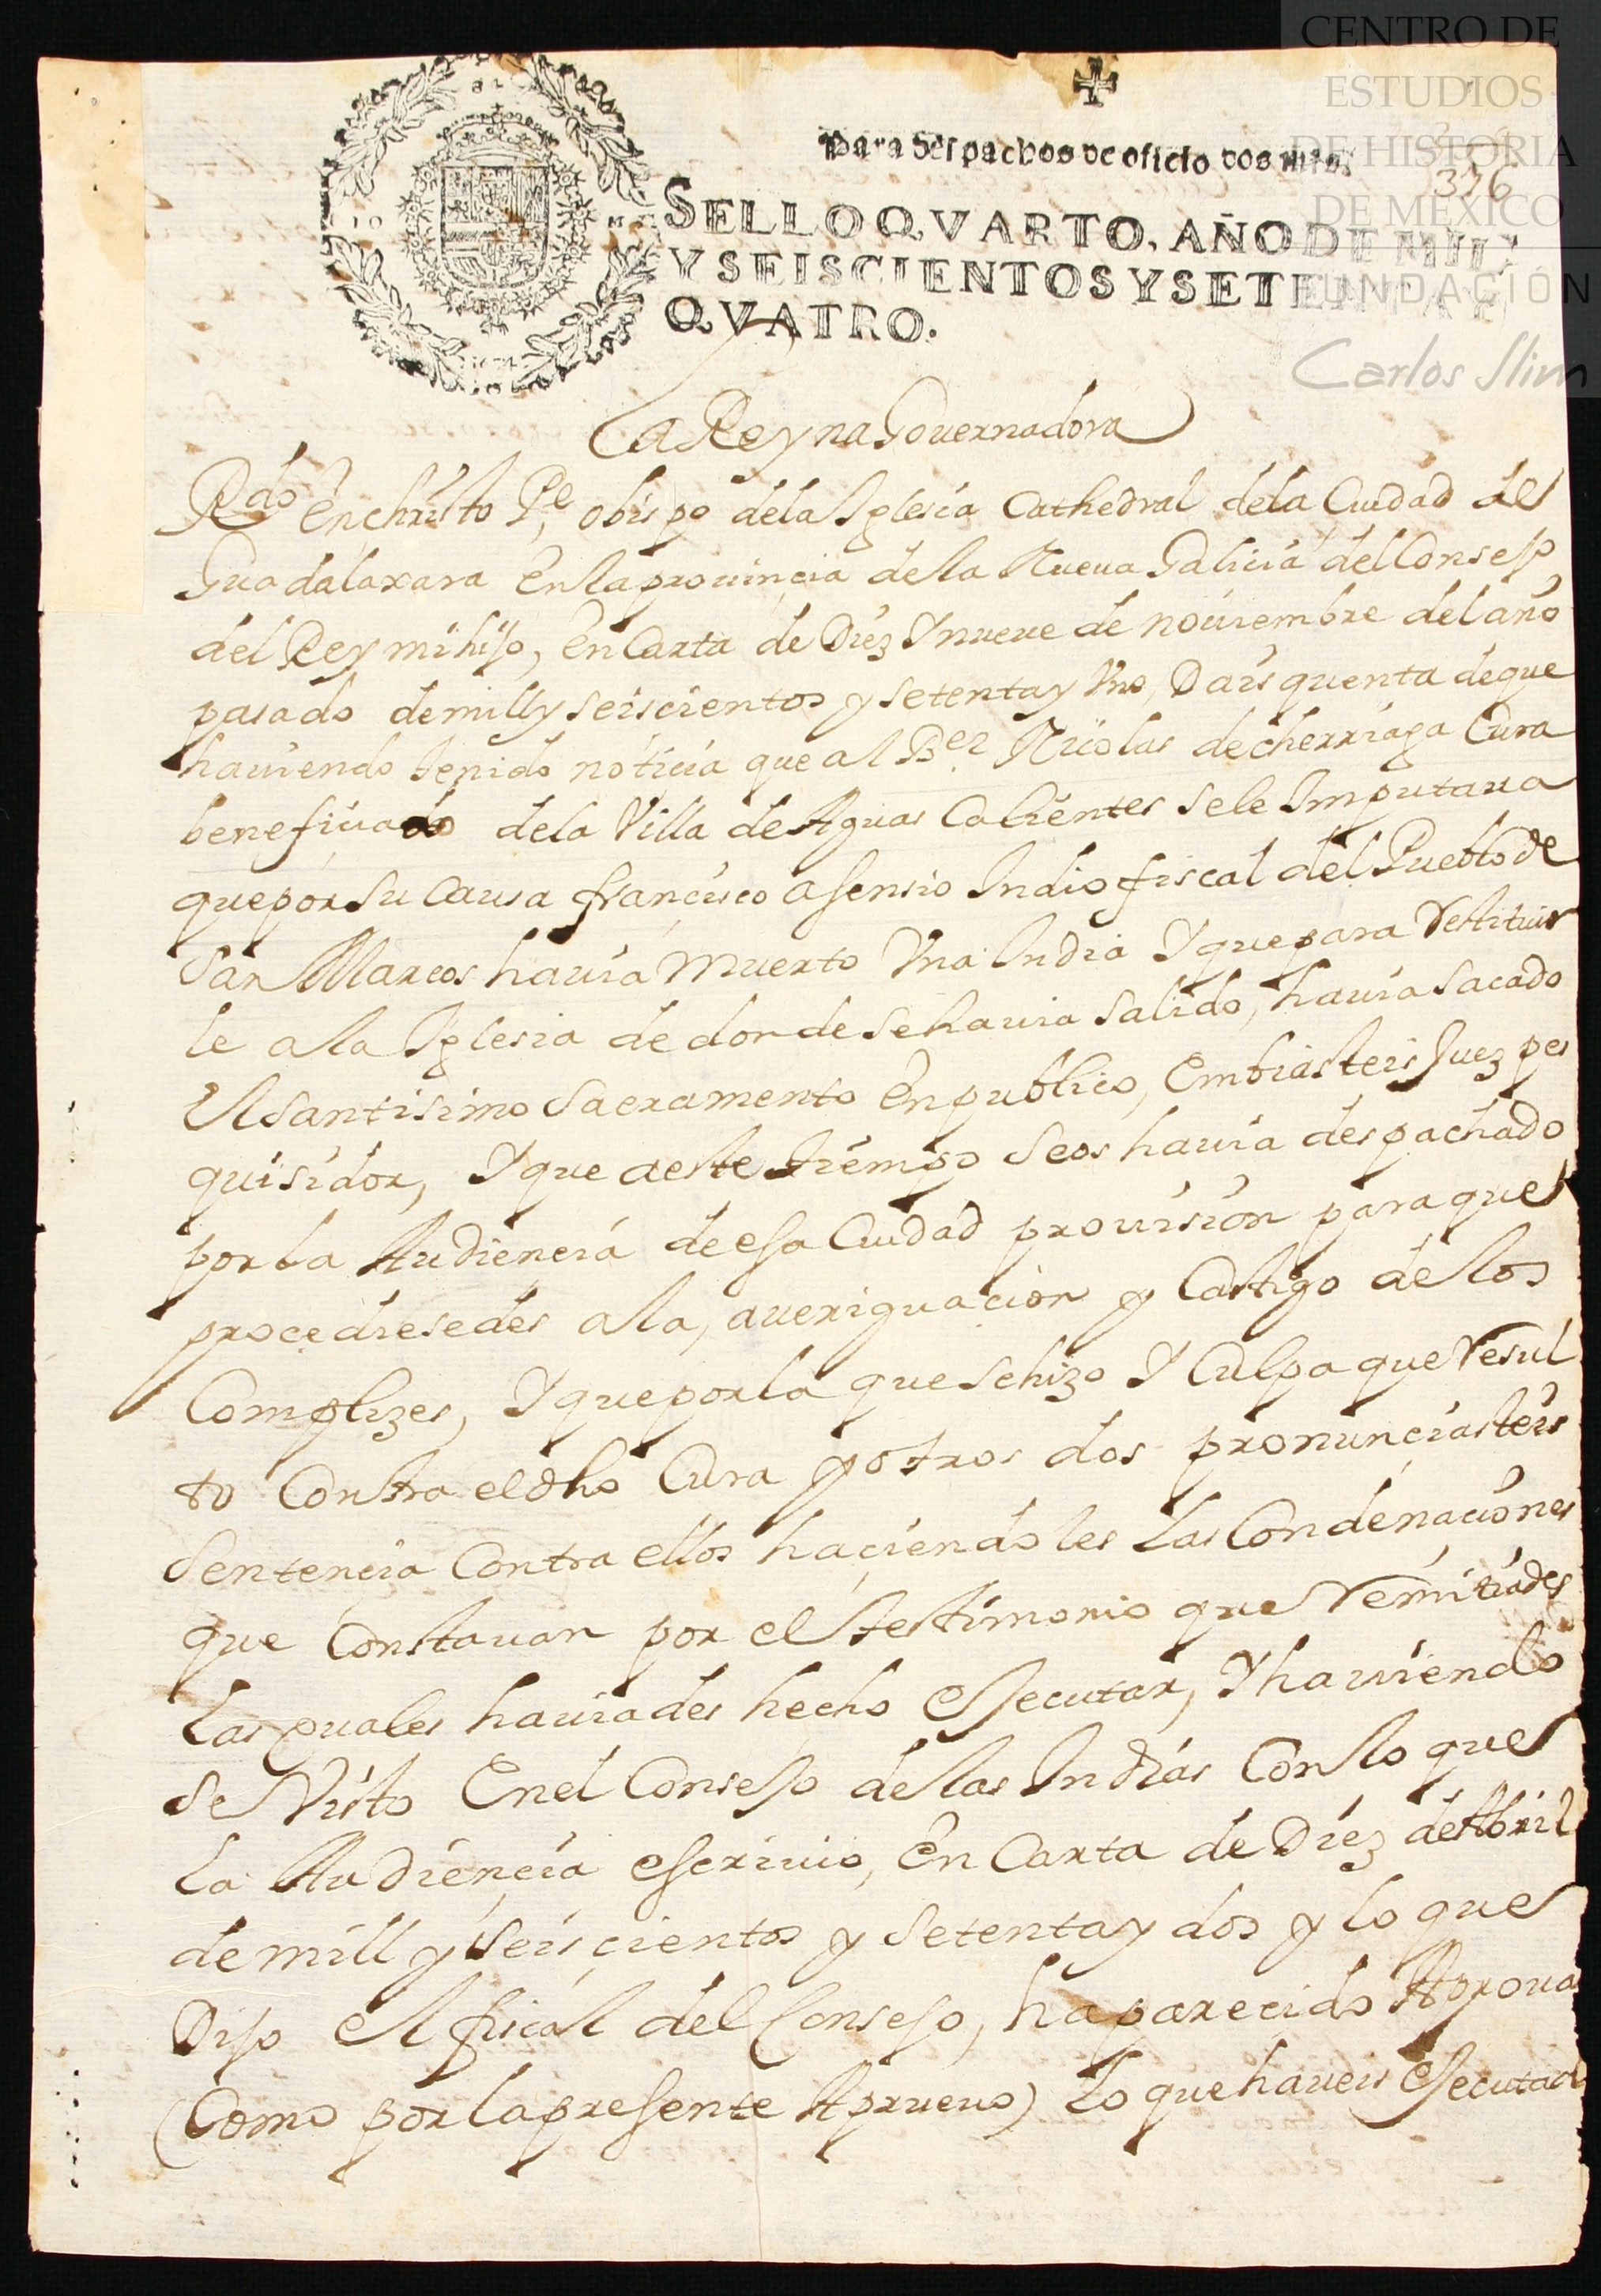 CENTRO DE
ESTUDIOS
DE HISTORIA
DE MÉXICO
FUNDACIÓN
Carlos Slim
para despachos de oficio dos mrs.
376
SELLO QVARTO, AÑO DE MIL
Y SEISCIENTOS Y SETENTA Y
QVATRO.
La Reyna Governadora
Rdo en christo Pe, obispo dela Iglesia Cathedral dela Ciudad de
Guadalaxara en la provincia dela Nueva Galicia del Consejo
del Rey mi hijo, en Carta de Diez Y nueve de noviembre del año
pasado de mill y seiscientos y setenta y Vno, Dais quenta de que
haviendo tenido noticia que al Ber Nicolas de cherriaga Cura
beneficiado dela Villa de Aguas Calientes se le Imputava
que por su causa francisco asensio Indio fiscal del Pueblo de
San Marcos havia muerto Vna India Y que para restituir
le a la Iglesia de donde se havia salido, havia sacado
El santisimo sacramento en publico, embiasteis Juez pes
quisidor, Y que a este tiempo se os havia despachado
por la Audiencia de esa Ciudad provision para que
procediesedes a la, averiguacion y Castigo de los
Complizes, Y que por la que se hizo Y Culpa que resul
to Contra el dho Cura y otros dos pronunciasteis
sentencia Contra ellos haciendoles las Condenaciones
que constavan por el testimonio que remitiades
las quales haviades hecho essecutar, Y haviendo
se Visto en el Consejo de las Indias Con lo que
la Audiencia escrivio, en Carta de Diez de Abril
de mill y seiscientos y setenta y dos y lo que
Dijo el fiscal del Consejo, ha parecido Aprova
(Como por la presente Apruevo) lo que haveis essecutad